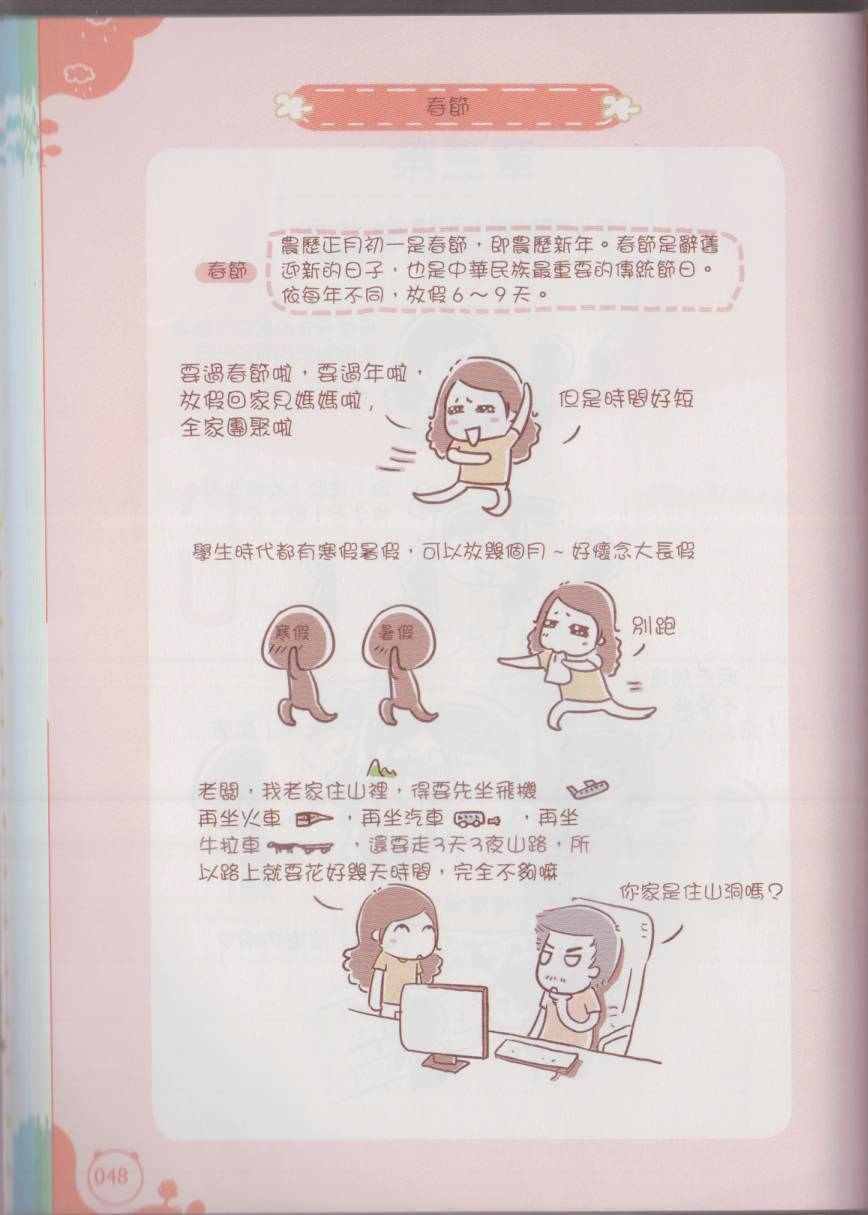 春節
春節
農歷正月初一是春節，即農歷新年。春節是辭舊
迎新的日子，也是中華民族最重要的傳統節日。
依每年不同，放假6～9天。
要過春節啦，要過年啦，
放假回家見媽媽啦，
全家團聚啦
但是時間好短
學生時代都有寒假暑假，可以放幾個月～好懷念大長假
寒假
暑假
別跑
老闆，我老家住山裡，得要先坐飛機
再坐火車，再坐汽車，再坐
牛拉車，還要走3天3夜山路，所
以路上就要花好幾天時間，完全不夠嘛
你家是住山洞嗎？
048